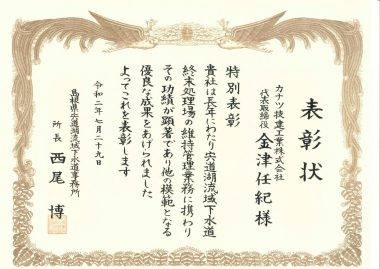 表彰状
カナツ技建工業株式会社
代表取締役 金津任紀様
特別表彰
貴社は長年にわたり宍道湖流域下水道
終末処理場の維持管理業務に携わり
その功績が顕著であり他の模範となる
優良な成果をあげられました
よってこれを表彰します
令和二年七月二十九日
島根県宍道湖流域下水道事務所
所長 西尾博